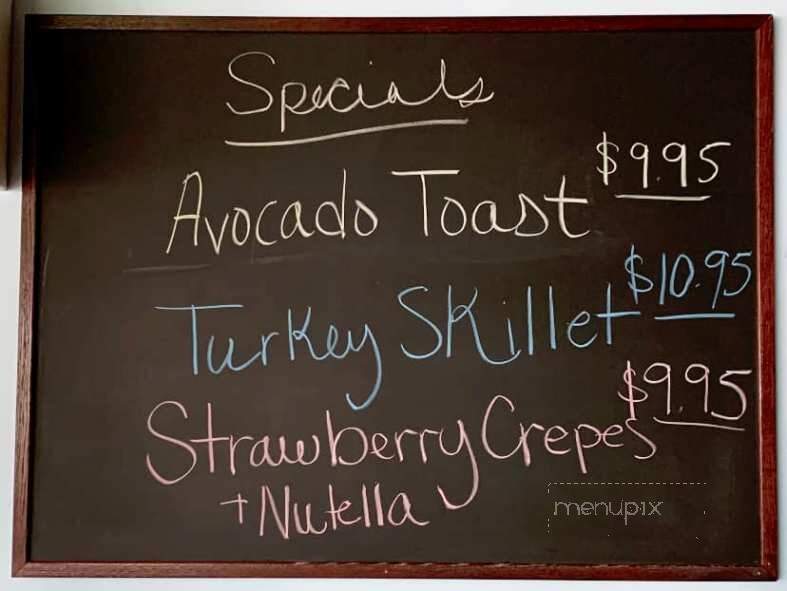 Specials
Avocado Toast $9.95
Turkey Skillet $10.95
Strawberry Crepes $9.95
+ Nutella
menupix